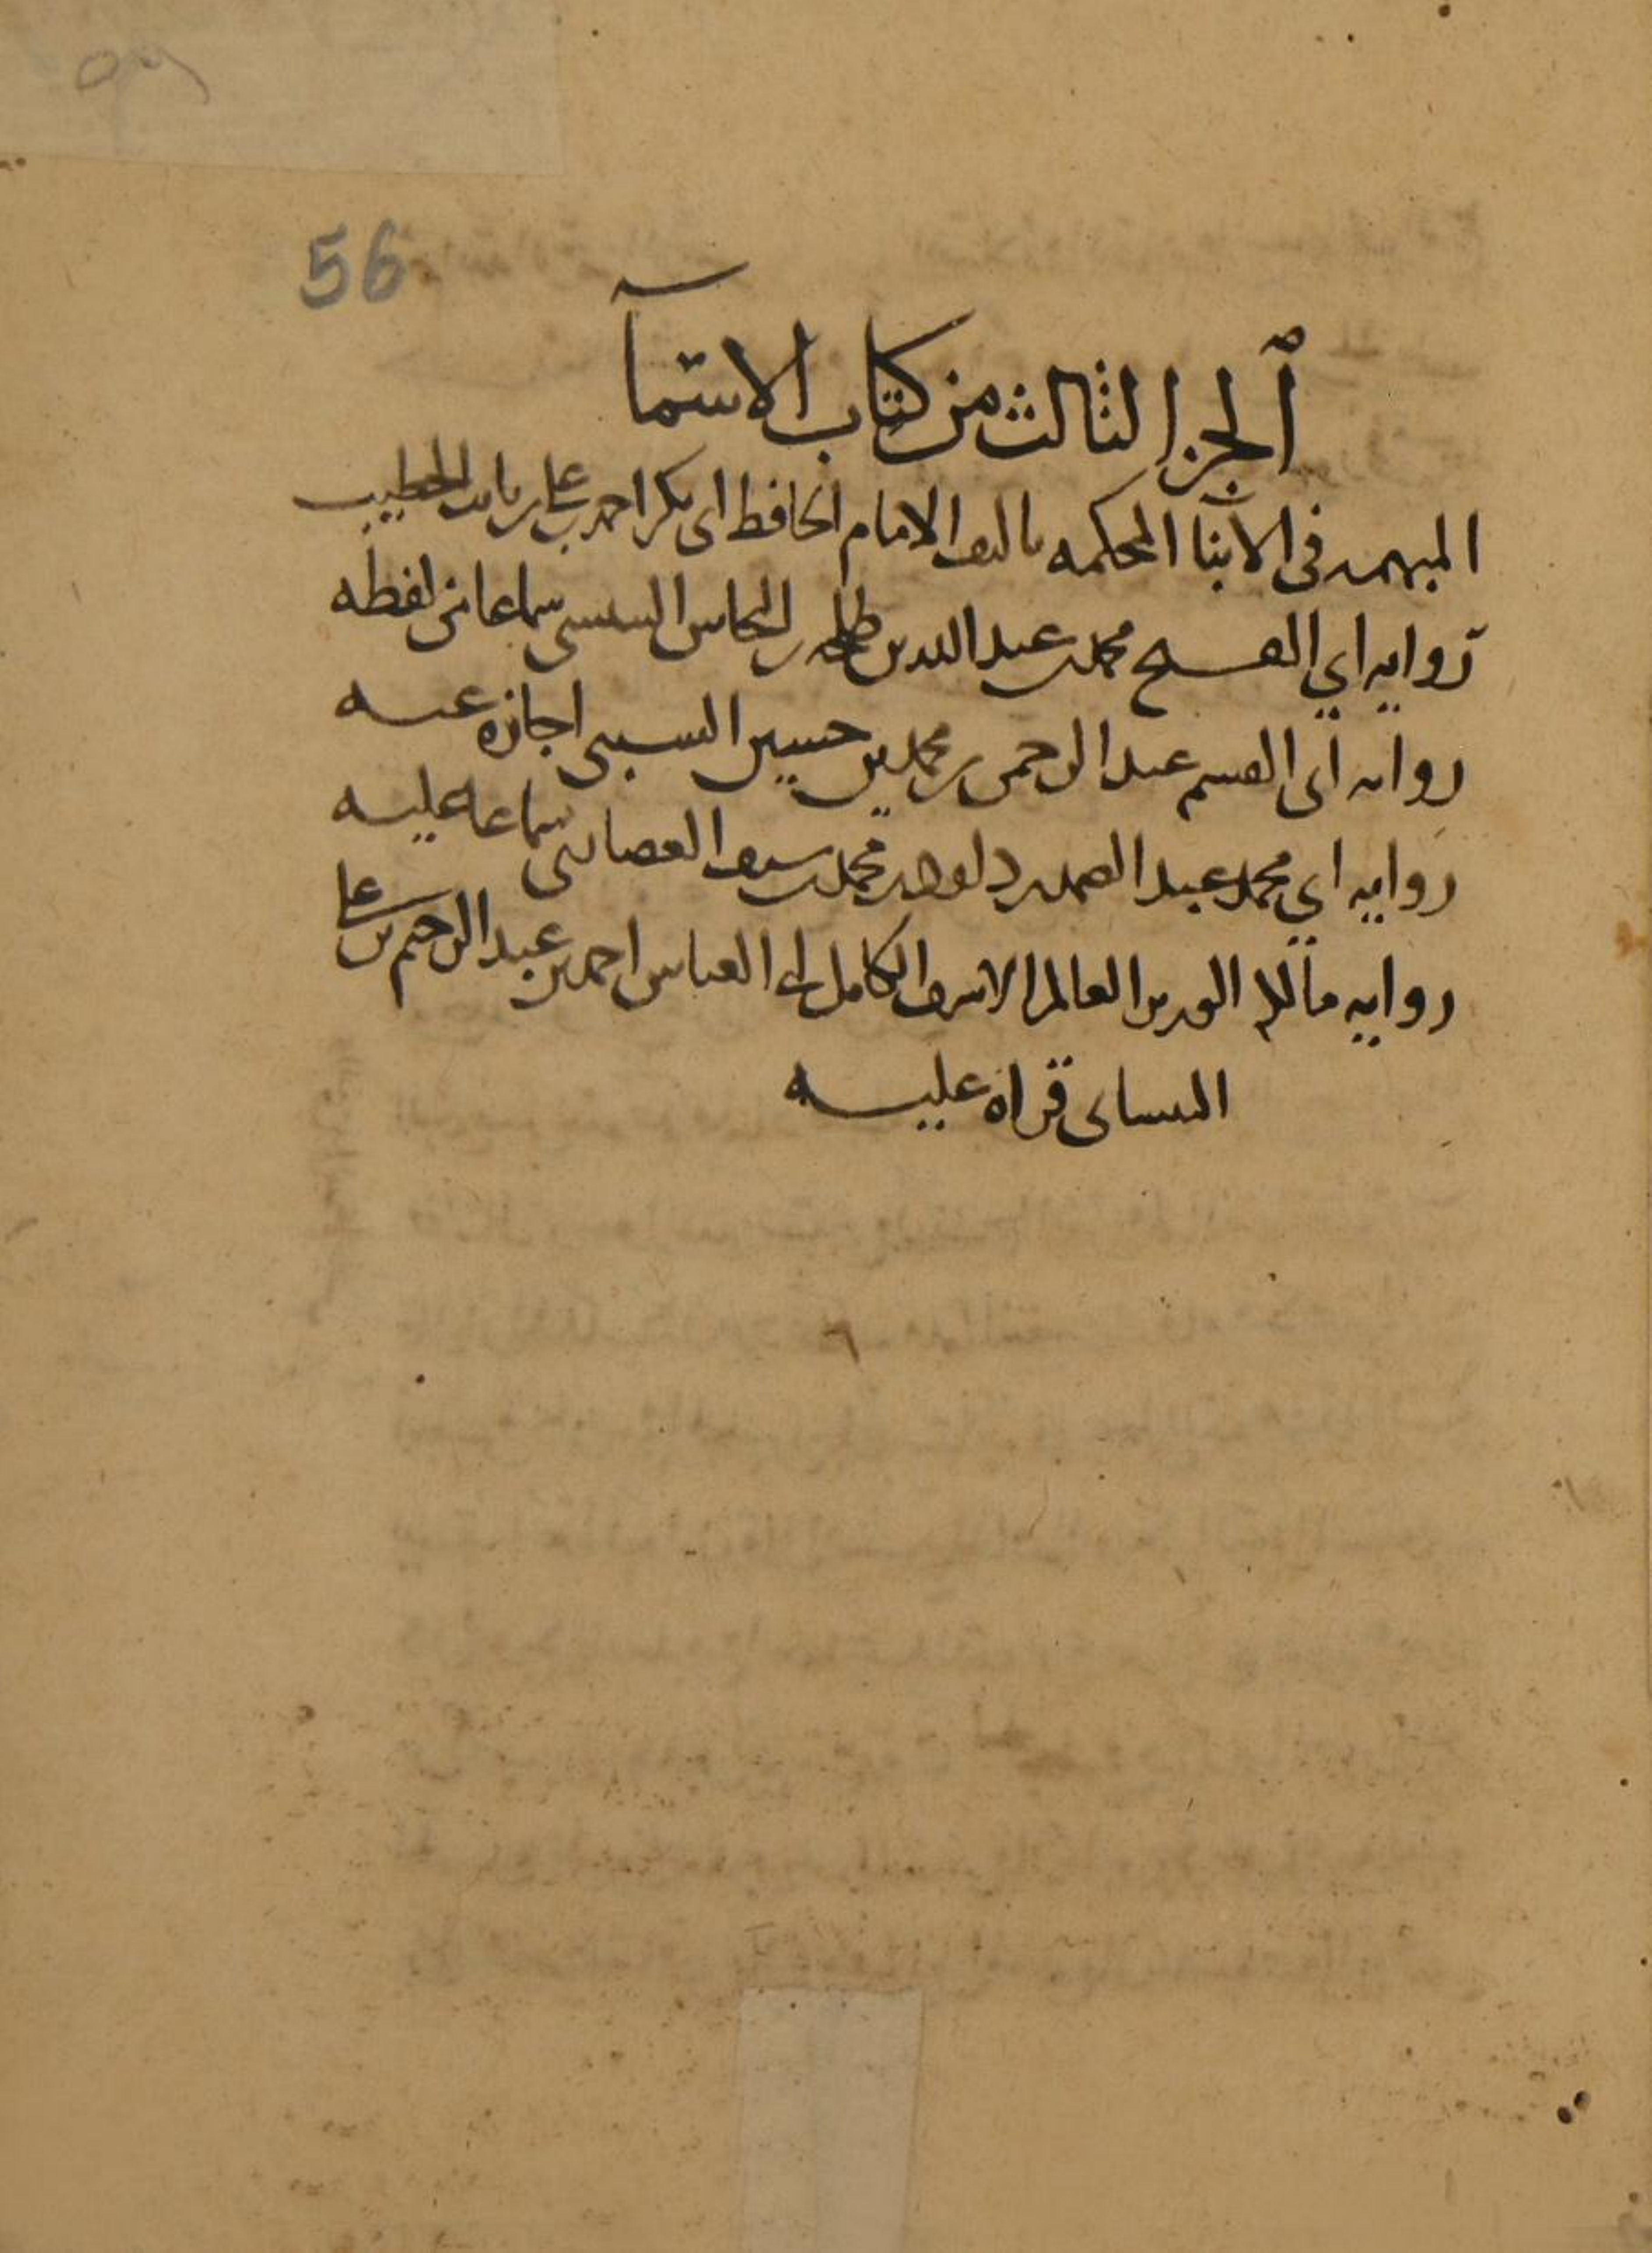 56
الجز الثالث من كتاب الاسمآ
المبهمه فى الانبا المحكمه تاليف الامام الحافظ ابى بكر احمد بن على بن ثابت الخطيب
روايه ابي الفتح محمد بن عبد الله بن طلحه بن النحاس التنيسى سماعا من لفظه
روايه ابى القسم عبد الرحمن بن محمد بن حسين السبيى اجازه عنه
روايه ابي محمد عبد الصمد بن داود بن محمد بن سيف الغضائرى سماعا عليه
روايه مالكه العالم الاشرف الكامل ابى العباس احمد بن عبد الرحيم بن على
البيسانى قراة عليه